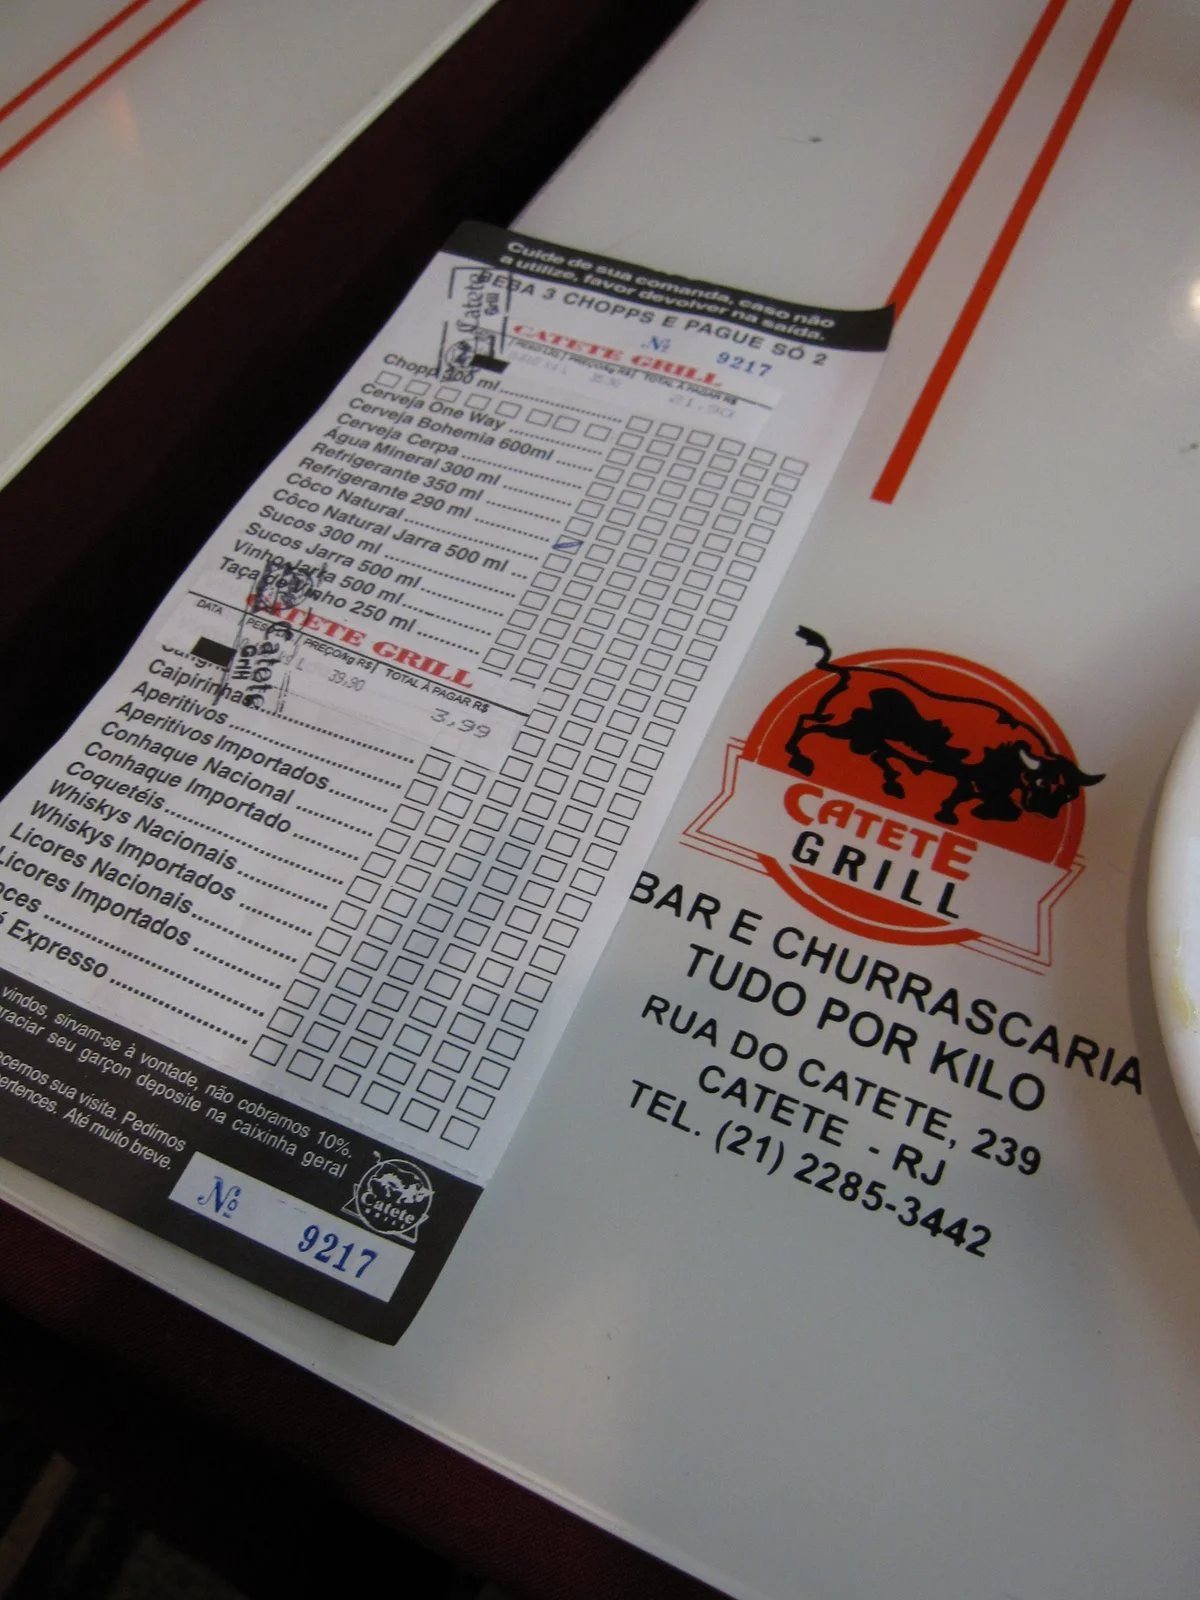 Cuide de sua comanda, caso não
a utilize, favor devolver na saída.
BEBA 3 CHOPPS E PAGUE SÓ 2
Nº 9217
CATETE GRILL
PREÇO/kg R$ TOTAL A PAGAR R$
21,90
Catete
Grill
Chopp 300 ml
Cerveja One Way
Cerveja Bohemia 600ml
Cerveja Cerpa
Água Mineral 300 ml
Refrigerante 350 ml
Refrigerante 290 ml
Côco Natural
Côco Natural Jarra 500 ml
Sucos 300 ml
Sucos Jarra 500 ml
Vinho Jarra 500 ml
Taça de Vinho 250 ml
CATETE GRILL
DATA PREÇO/kg R$ TOTAL A PAGAR R$
39,90 3,99
Catete
Grill
Caipirinhas
Aperitivos
Aperitivos Importados
Conhaque Nacional
Conhaque Importado
Coquetéis
Whiskys Nacionais
Whiskys Importados
Licores Nacionais
Licores Importados
oces
é Expresso
vindos, sirvam-se à vontade, não cobramos 10%.
graciar seu garçon deposite na caixinha geral
cemos sua visita. Pedimos
ertences. Até muito breve.
Catete
GRILL
Nº 9217
CATETE
GRILL
BAR E CHURRASCARIA
TUDO POR KILO
RUA DO CATETE, 239
CATETE - RJ
TEL. (21) 2285-3442